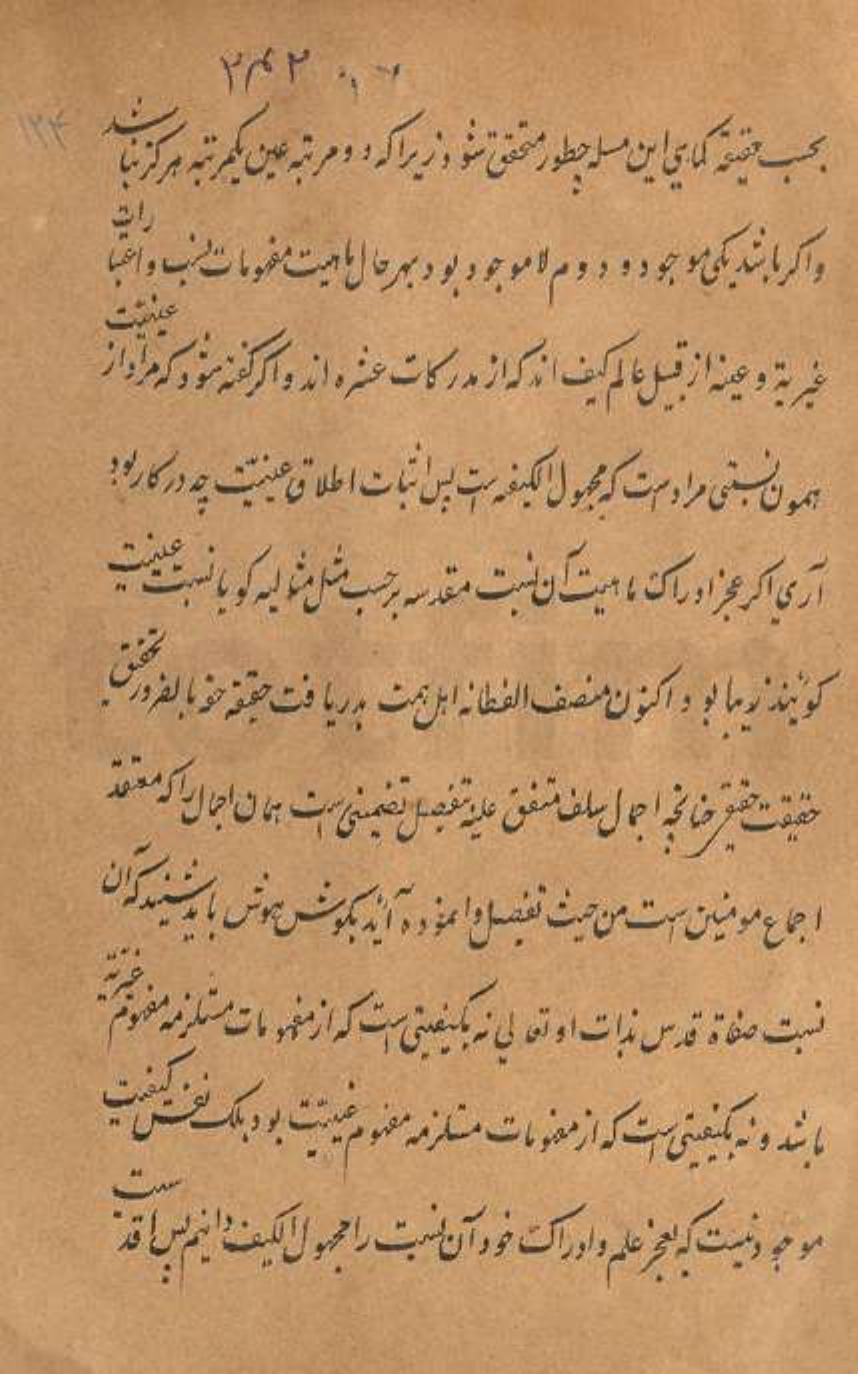 ۱۲۴
بحسب حقیقة کمایي این مسله چطور متحقق شود زیراکه دو مرتبه عین یکمرتبه هرکز نباشد
واکر باشد یکی موجود و دوم لاموجود بود بهر حال ماهیت مفهومات نسب و اعتبارات
غیریة و عینه از قبیل عالم کیف اند که از مدرکات عشره اند و اکر کفته شود که مراد از عینیّت
همون نسبتی مراد است که مجهول الکیفه است پس اثبات اطلاق عینیّت چه در کار بود
آري اکر عجز ادراک ماهیت آن نسبت مقدسه برحسب مثل مثالیه کویا نسبت عینیت
کویند زیبا بود اکنون منصف الفطانه اهل همت بدریافت حقیقه حقه بالضرور تحقیق
حقیقت حقیقي چنانچه اجمال سلف متفق علیه تفصیل تضمینی است همان اجمال را که معتقد
اجماع مومنین است من حیث تفصیل وانموده آید بکوش هوش باید شنید که آن
نسبت صفاة قدس بذات او تعالي نه بکیفیتی است که از مفهومات مستلزمه مفهوم غیریّة
باشد و نه بکیفیتی است که از مفهومات مستلزمه مفهوم عینیّت بود بلک نفس کیفیت
موجود نیست که بعجز علم و ادراک خود آن نسبت را مجهول الکیف دانیم پس اقد ست